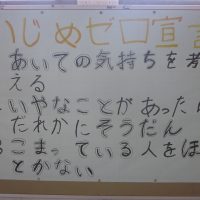 いじめゼロ宣言
あいての気持ちを考
える
いやなことがあったら
だれかにそうだん
こまっている人をほ
とかない